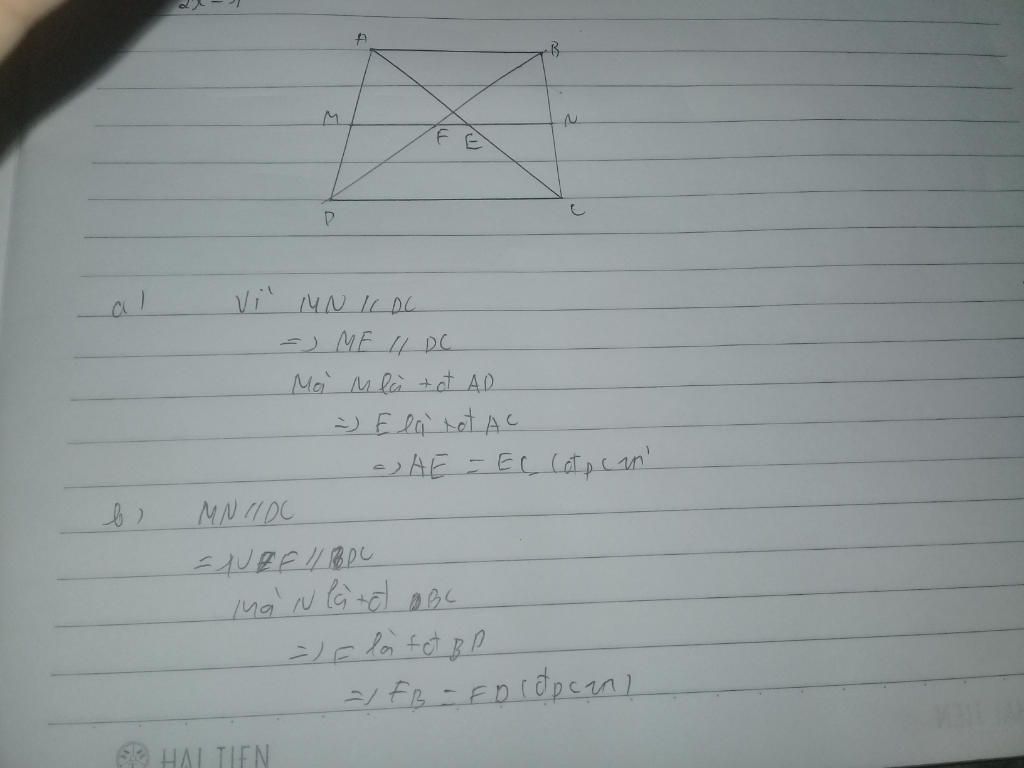 2x-1
A
B
M
N
F
E
D
C
a) Vì MN // DC
=> ME // DC
Mà M là tđ AD
=> E là tđ AC
=> AE = EC (đpcm)
b) MN // DC
=> NF // DC
Mà N là tđ BC
=> F là tđ BD
=> FB = FD (đpcm)
HAI TIEN
HAI TIEN